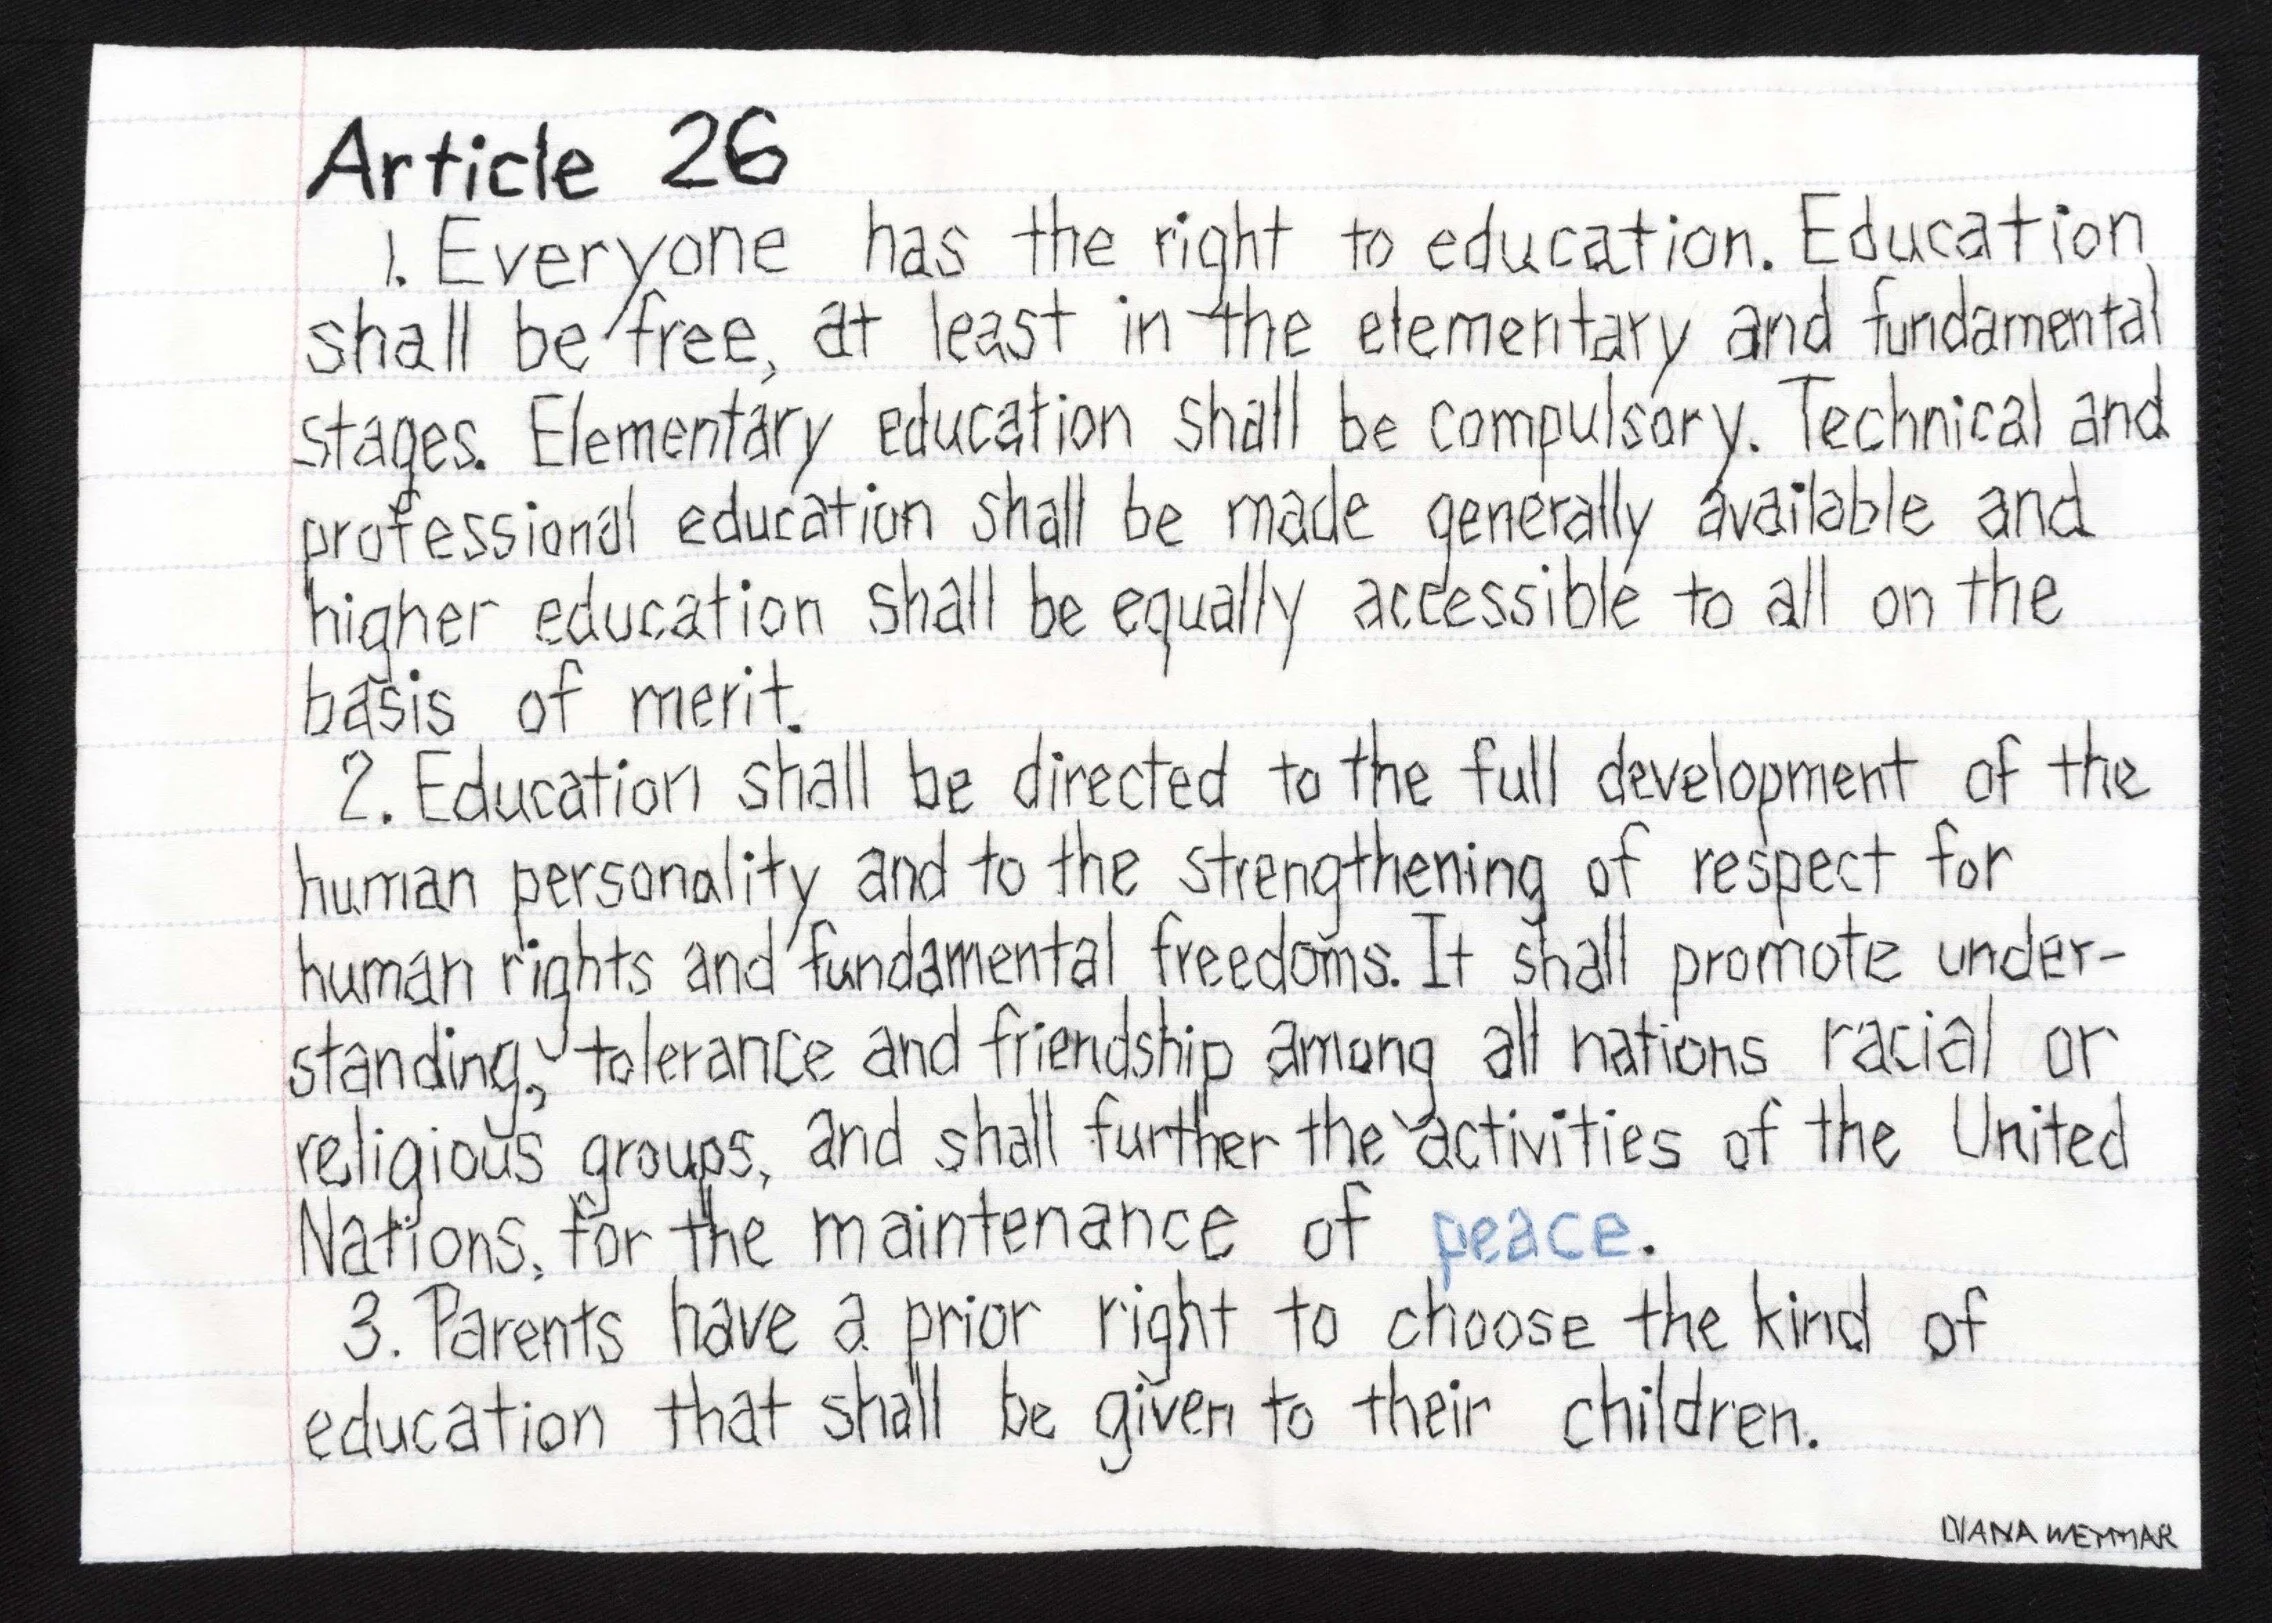 Article 26
1. Everyone has the right to education. Education
shall be free, at least in the elementary and fundamental
stages. Elementary education shall be compulsory. Technical and
professional education shall be made generally available and
higher education shall be equally accessible to all on the
basis of merit.
2. Education shall be directed to the full development of the
human personality and to the strengthening of respect for
human rights and fundamental freedoms. It shall promote under-
standing, tolerance and friendship among all nations racial or
religious groups, and shall further the activities of the United
Nations, for the maintenance of peace.
3. Parents have a prior right to choose the kind of
education that shall be given to their children.
DIANA WEYMAR